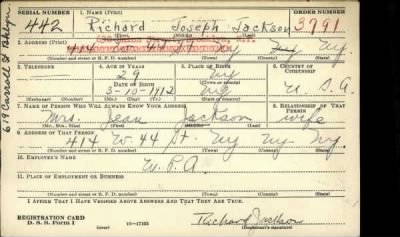 SERIAL NUMBER
1. NAME (Print)
ORDER NUMBER
442
Richard Joseph Jackson
3791
(First) (Middle) (Last)
2. ADDRESS (Print)
414 44 St Ny Ny.
(Number and street or R. F. D. number) (Town) (County) (State)
619 Carroll St Bklyn
3. TELEPHONE
4. AGE IN YEARS
5. PLACE OF BIRTH
6. COUNTRY OF CITIZENSHIP
29
Ny
(Town or county)
DATE OF BIRTH
3-10-1912
Ny
U. S. A.
(Exchange) (No.)
(Mo.) (Day) (Yr.)
(State or country)
7. NAME OF PERSON WHO WILL ALWAYS KNOW YOUR ADDRESS
8. RELATIONSHIP OF THAT PERSON
Mrs. Jean Jackson
wife
(Mr., Mrs., Miss) (First) (Middle) (Last)
9. ADDRESS OF THAT PERSON
414 W. 44 St. Ny Ny Ny.
(Number and street or R. F. D. number) (Town) (County) (State)
10. EMPLOYER'S NAME
W. P. A.
11. PLACE OF EMPLOYMENT OR BUSINESS
(Number and street or R. F. D. number) (Town) (County) (State)
I AFFIRM THAT I HAVE VERIFIED ABOVE ANSWERS AND THAT THEY ARE TRUE.
REGISTRATION CARD
D. S. S. Form 1
(over)
16—17105
Richard Jackson
(Registrant's signature)